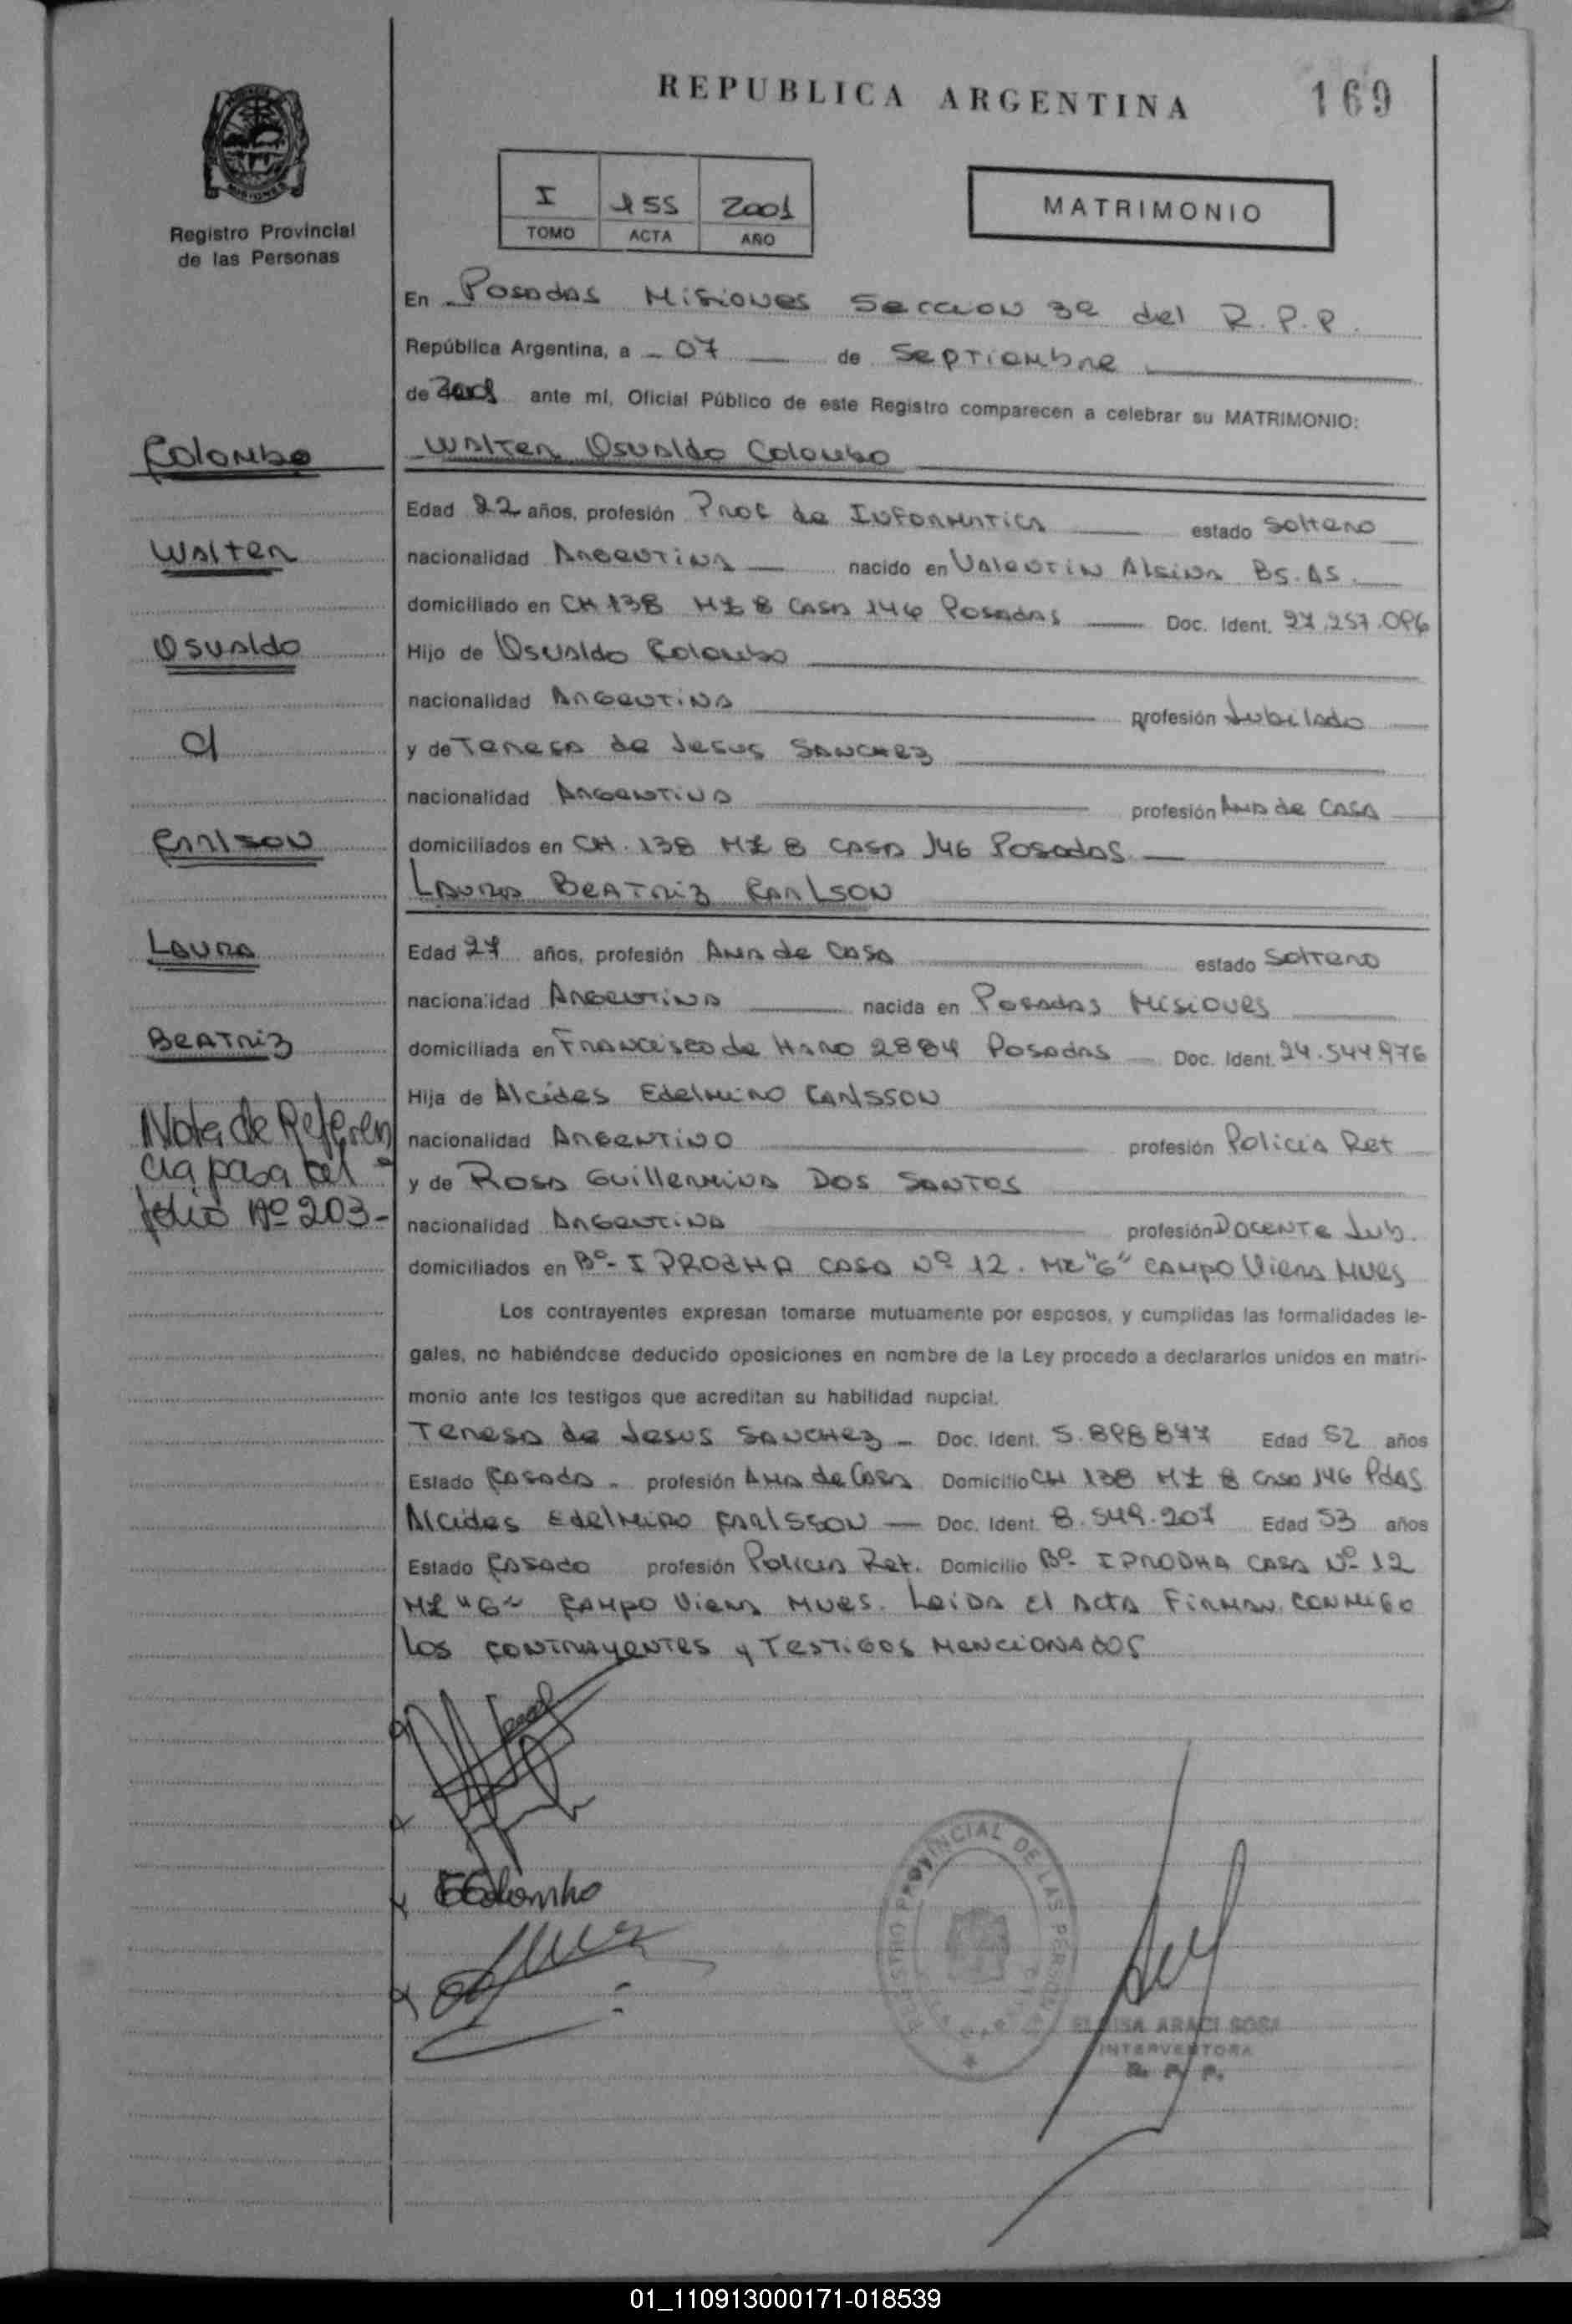 REPUBLICA ARGENTINA
169
Registro Provincial
de las Personas
I 155 2001
TOMO ACTA AÑO
MATRIMONIO
En Posadas Misiones Seccion 3ª del R.P.P.
República Argentina, a 07 de Septiembre
de 2001 ante mí, Oficial Público de este Registro comparecen a celebrar su MATRIMONIO:
Colombo
Walter Osvaldo Colombo
Edad 22 años, profesión Prof de Informatica estado Soltero
Walter
nacionalidad Argentina nacido en Valentin Alsina Bs. As.
domiciliado en CH 138 Mz 8 Casa 146 Posadas Doc. Ident. 27.257.096
Osvaldo
Hijo de Osvaldo Colombo
nacionalidad Argentina profesión Jubilado
c/
y de Teresa de Jesus Sanchez
nacionalidad Argentina profesión Ama de Casa
Carlson
domiciliados en CH. 138 Mz 8 Casa 146 Posadas
Laura Beatriz Carlson
Laura
Edad 27 años, profesión Ama de Casa estado Soltera
nacionalidad Argentina nacida en Posadas Misiones
Beatriz
domiciliada en Francisco de Haro 2884 Posadas Doc. Ident. 24.544.976
Hija de Alcides Edelmiro Carlsson
Nota de Referen
cia pasa al
folio Nº 203-
nacionalidad Argentino profesión Policia Ret
y de Rosa Guillermina Dos Santos
nacionalidad Argentina profesión Docente Jub.
domiciliados en Bº- IPRODHA Casa Nº 12. Mz "G" Campo Viera Mnes
Los contrayentes expresan tomarse mutuamente por esposos, y cumplidas las formalidades le-
gales, no habiéndose deducido oposiciones en nombre de la Ley procedo a declararlos unidos en matri-
monio ante los testigos que acreditan su habilidad nupcial.
Teresa de Jesus Sanchez - Doc. Ident. 5.898877 Edad 52 años
Estado Casada - profesión Ama de Casa Domicilio CH 138 Mz 8 Casa 146 Pdas
Alcides Edelmiro Carlsson - Doc. Ident. 8.549.207 Edad 53 años
Estado Casado profesión Policia Ret. Domicilio Bº IPRODHA Casa Nº 12
Mz "G" Campo Viera Mnes. Leida el acta firman conmigo
los contrayentes y testigos mencionados
Colombo
REGISTRO PROVINCIAL DE LAS PERSONAS
ELOISA ARACI SOSA
INTERVENTORA
R. P. P.
01_110913000171-018539